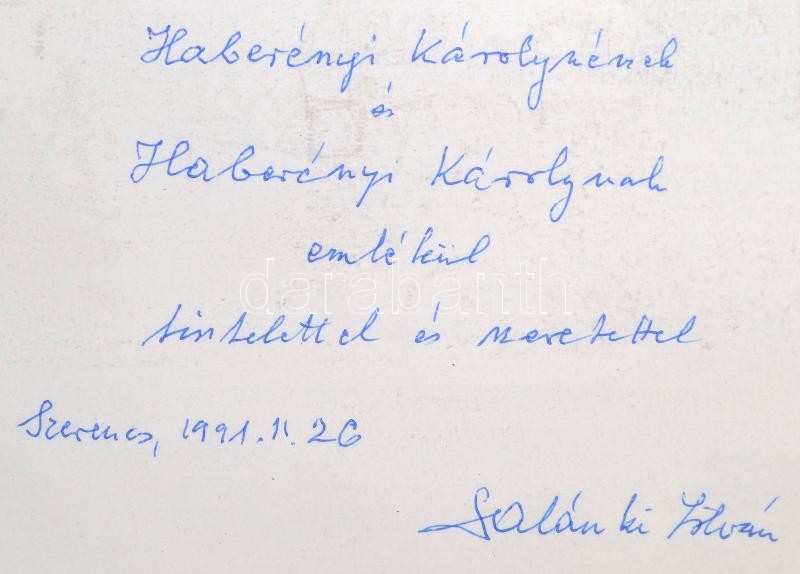 Haberényi Károlynénak
és
Haberényi Károlynak
emlékül
darabanth
tisztelettel és szeretettel
Szerencs, 1991. II. 26
Salánki István